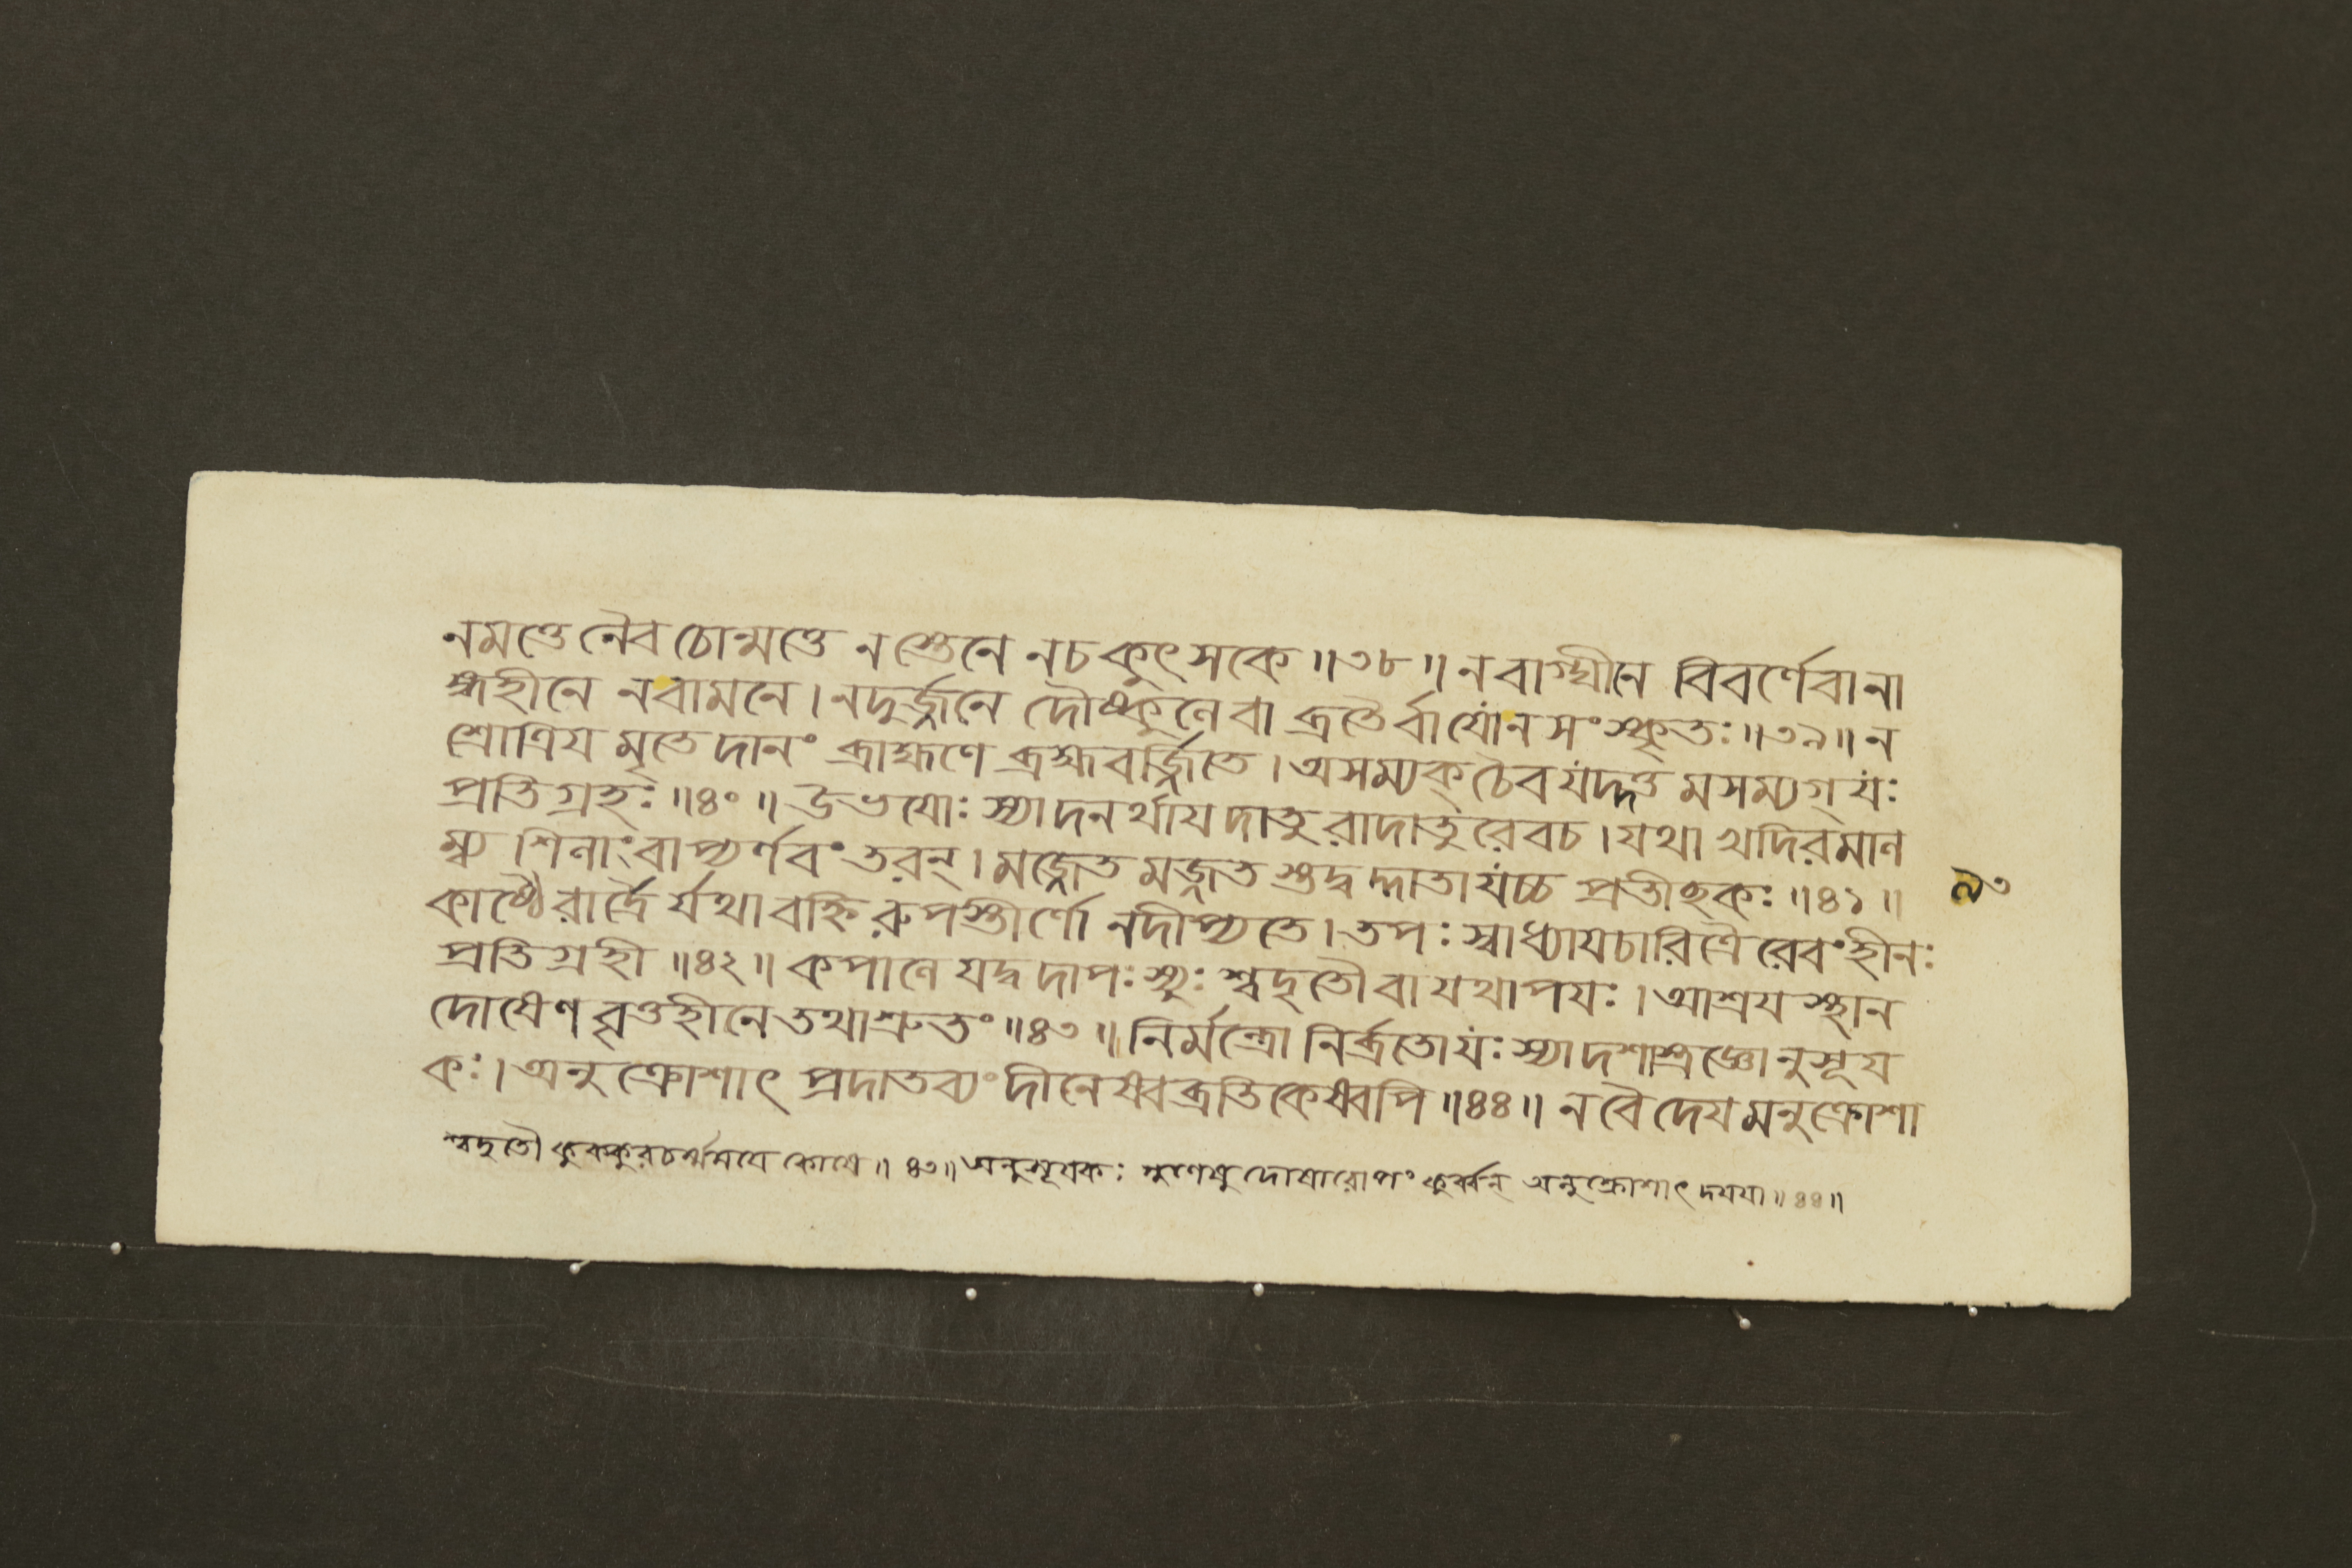 নমত্তে নৈব চোন্মত্তে ন স্তেনে ন চ কুৎসকে ॥৩৮॥ ন বাগ্ঘীনে বিবর্ণে বা না
ঙ্গহীনে ন বামনে । ন দুর্জ্জনে দৌষ্কুলে বা ব্রতৈর্বা যো ন সংস্কৃতঃ ॥৩৯॥ ন
শ্রোত্রিয মৃতে দানং ব্রাহ্মণে ব্রহ্মবর্জ্জিতে । অসম্যক্ চৈব যদ্দত্ত মসম্যগ্ যঃ
প্রতিগ্রহঃ ॥৪০॥ উভযোঃ স্যাদনর্থায দাতুরাদাতুরেব চ । যথা খদিরমাল
ম্ব্য শিলাং বাপ্যর্ণবং তরন্ । মজ্জেত মজ্জত স্তদ্ব দ্দাতা যশ্চ প্রতীছকঃ ॥৪১॥
কাষ্ঠৈরার্দ্রৈ র্যথা বহ্নি রুপস্তীর্ণো ন দীপ্যতে । তপঃ স্বাধ্যাযচারিত্রৈ রেবং হীনঃ
প্রতিগ্রহী ॥৪২॥ কপালে যদ্বদাপঃ স্যুঃ শ্বদৃতৌ বা যথা পযঃ । আশ্রয স্থান
দোষেণ বৃত্তহীনে তথা শ্রুতং ॥৪৩॥ নির্মন্ত্রো নির্ব্রতো যঃ স্যাদশাস্ত্রজ্ঞোনুসূয
কঃ । অনুক্রোশাৎ প্রদাতব্যং দীনেষ্বব্রতিকেষ্বপি ॥৪৪॥ ন বৈ দেয মনুক্রোশা
শ্বদৃতৌ কুক্কুরচর্ম্মময কোষে ॥৪৩॥ অনুসূযকঃ গুণেষু দোষারোপং কুর্ব্বন্ অনুক্রোশাৎ দযযা ॥৪৪॥
৯৩